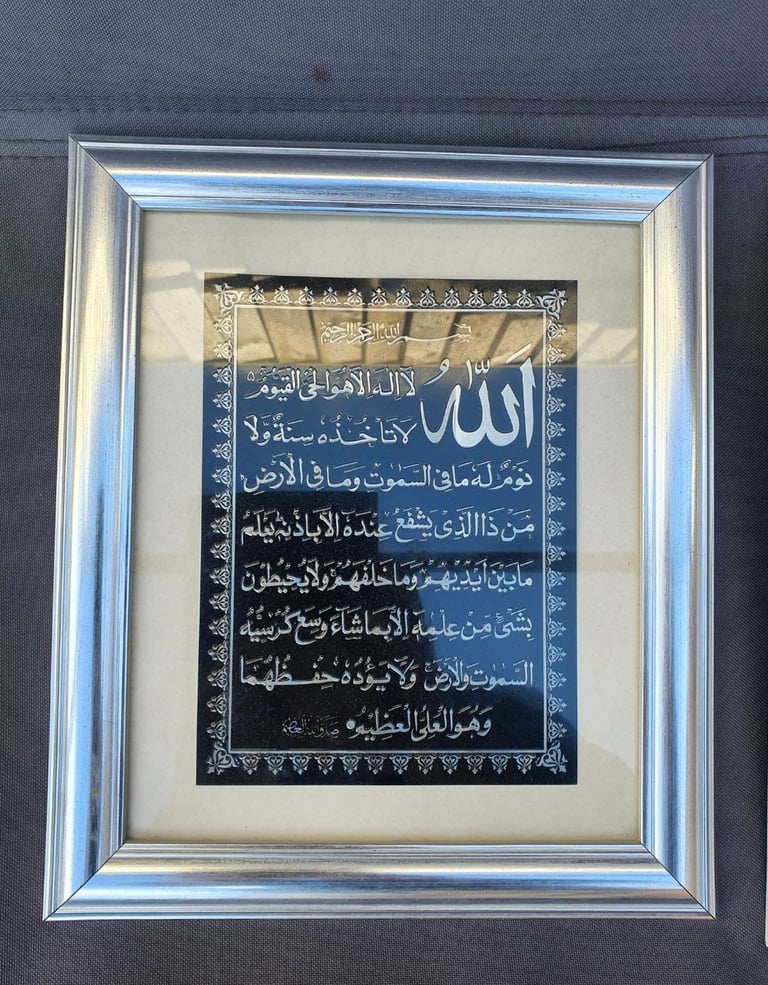 بسم الله الرحمن الرحيم
اَللّٰهُ لَا اِلٰهَ اِلَّا هُوَ الْحَیُّ الْقَیُّوْمُ
لَا تَاْخُذُهٗ سِنَةٌ وَّلَا
نَوْمٌ لَهٗ مَا فِی السَّمٰوٰتِ وَمَا فِی الْاَرْضِ
مَنْ ذَا الَّذِیْ یَشْفَعُ عِنْدَهٗ اِلَّا بِاِذْنِهٖ یَعْلَمُ
مَا بَیْنَ اَیْدِیْهِمْ وَمَا خَلْفَهُمْ وَلَا یُحِیْطُوْنَ
بِشَیْءٍ مِّنْ عِلْمِهٖ اِلَّا بِمَا شَآءَ وَسِعَ كُرْسِیُّهُ
السَّمٰوٰتِ وَالْاَرْضَ وَلَا یَـُٔوْدُهٗ حِفْظُهُمَا
وَهُوَ الْعَلِیُّ الْعَظِیْمُ صدق الله العظيم